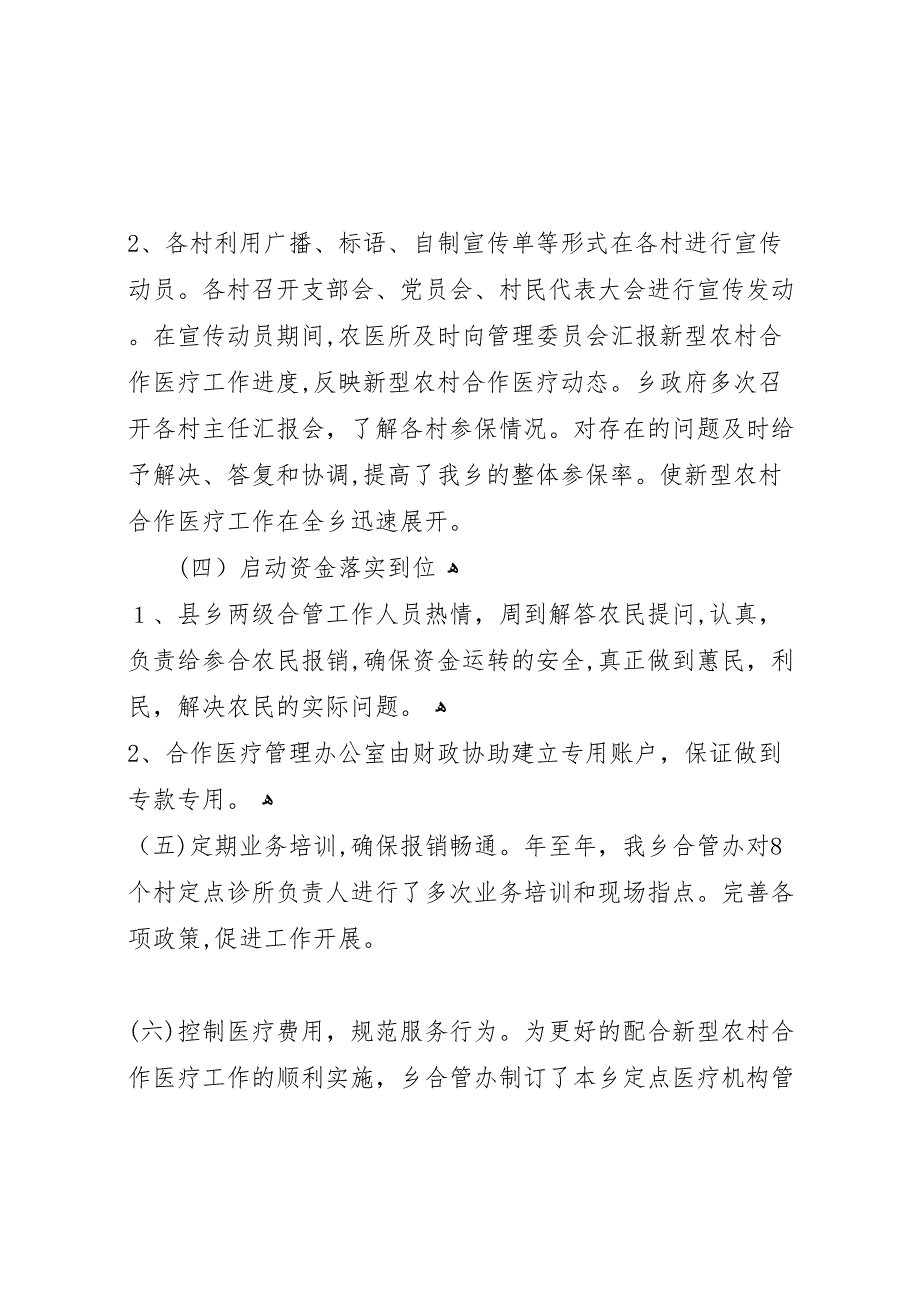 2、各村利用广播、标语、自制宣传单等形式在各村进行宣传
动员。各村召开支部会、党员会、村民代表大会进行宣传发动
。在宣传动员期间,农医所及时向管理委员会汇报新型农村合
作医疗工作进度,反映新型农村合作医疗动态。乡政府多次召
开各村主任汇报会，了解各村参保情况。对存在的问题及时给
予解决、答复和协调,提高了我乡的整体参保率。使新型农村
合作医疗工作在全乡迅速展开。
(四）启动资金落实到位 ﻫ
１、县乡两级合管工作人员热情，周到解答农民提问,认真，
负责给参合农民报销,确保资金运转的安全,真正做到蕙民，利
民，解决农民的实际问题。 ﻫ
2、合作医疗管理办公室由财政协助建立专用账户，保证做到
专款专用。 ﻫ
（五)定期业务培训,确保报销畅通。年至年，我乡合管办对8
个村定点诊所负责人进行了多次业务培训和现场指点。完善各
项政策,促进工作开展。
(六)控制医疗费用，规范服务行为。为更好的配合新型农村合
作医疗工作的顺利实施，乡合管办制订了本乡定点医疗机构管